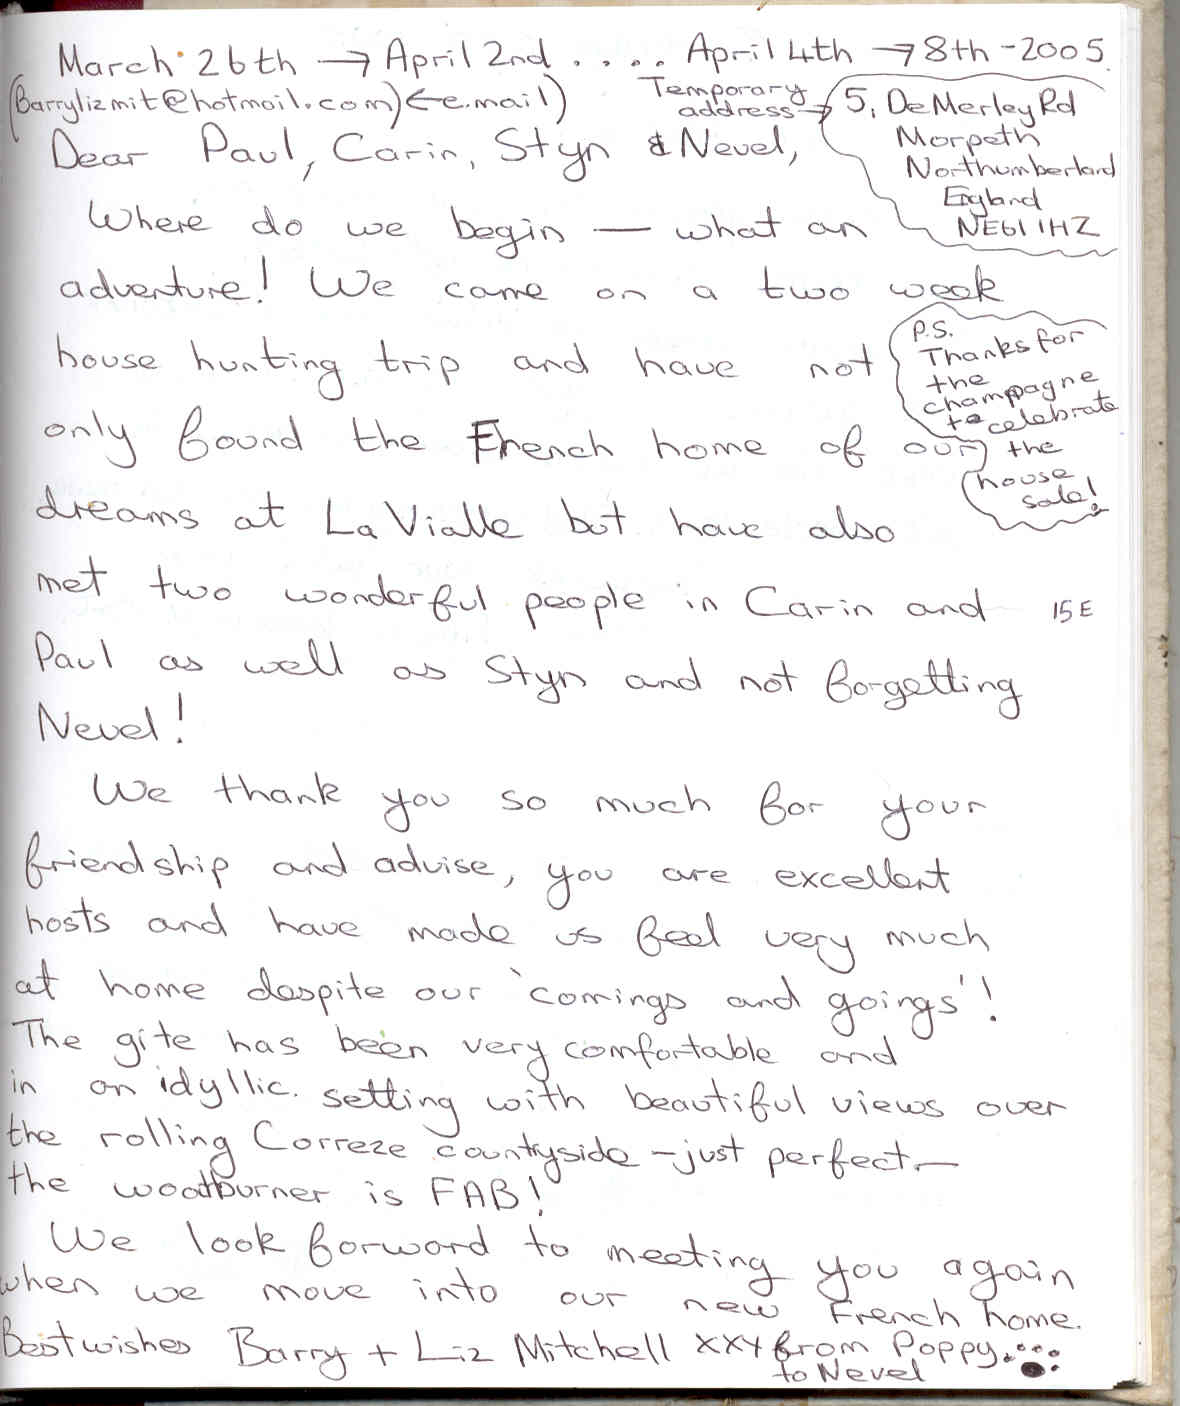 March 26th → April 2nd . . . . April 4th → 8th - 2005.
(Barrylizmit@hotmail.com) ← e.mail)
Temporary
address →
5, De Merley Rd
Morpeth
Northumberland
England
NE61 1HZ
Dear Paul, Carin, Styn & Nevel,
Where do we begin — what an
adventure! We came on a two week
house hunting trip and have not
only found the French home of our
dreams at La Vialle but have also
met two wonderful people in Carin and
Paul as well as Styn and not forgetting
Nevel!
P.S.
Thanks for
the
champagne
to celebrate
the
house
sale!
15E
We thank you so much for your
friendship and advise, you are excellent
hosts and have made us feel very much
at home despite our 'comings and goings'!
The gite has been very comfortable and
in an idyllic. setting with beautiful views over
the rolling Correze countryside - just perfect —
the woodburner is FAB!
We look forward to meeting you again
when we move into our new French home.
Best wishes Barry + Liz Mitchell XXX from Poppy
to Nevel